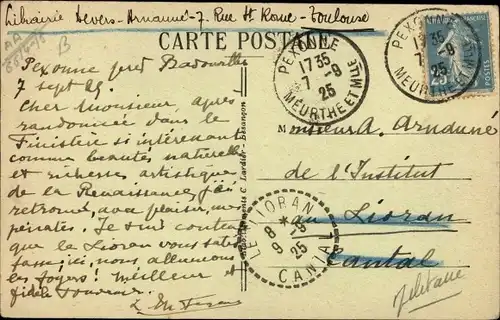 Librairie Severs-Arnauné-7, Rue St Rome-Toulouse
CARTE POSTALE
Pexonne près Badonviller
7 sept 25.
Cher Monsieur, après
randonnée dans le
Finistère si intéressant
comme beautés naturelles
et richesses artistiques
de la Renaissance, j'ai
retrouvé, avec plaisir, mes
pénates. Je suis content
que le Lioran vous satis
fasse; ici, nous allumons
les foyers! Meilleur et
fidèle souvenir
PEXONNE
17 35
7 -9
25
MEURTHE ET MLLE
PEXONNE
17 35
7 -9
25
MEURTHE ET MLLE
Monsieur A. Arnauné
de l'Institut
au Lioran
Cantal
LE LIORAN
8 *
9 -9
25
CANTAL
C. Lardier - Besançon